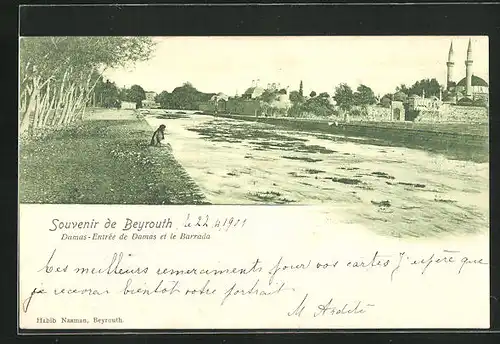 Souvenir de Beyrouth, le 22 4 1901
Damas-Entrée de Damas et le Barrada
Les meilleurs remerciments pour vos cartes J'espére que
je recevrai bientôt votre portrait
M
Habib Naaman, Beyrouth.